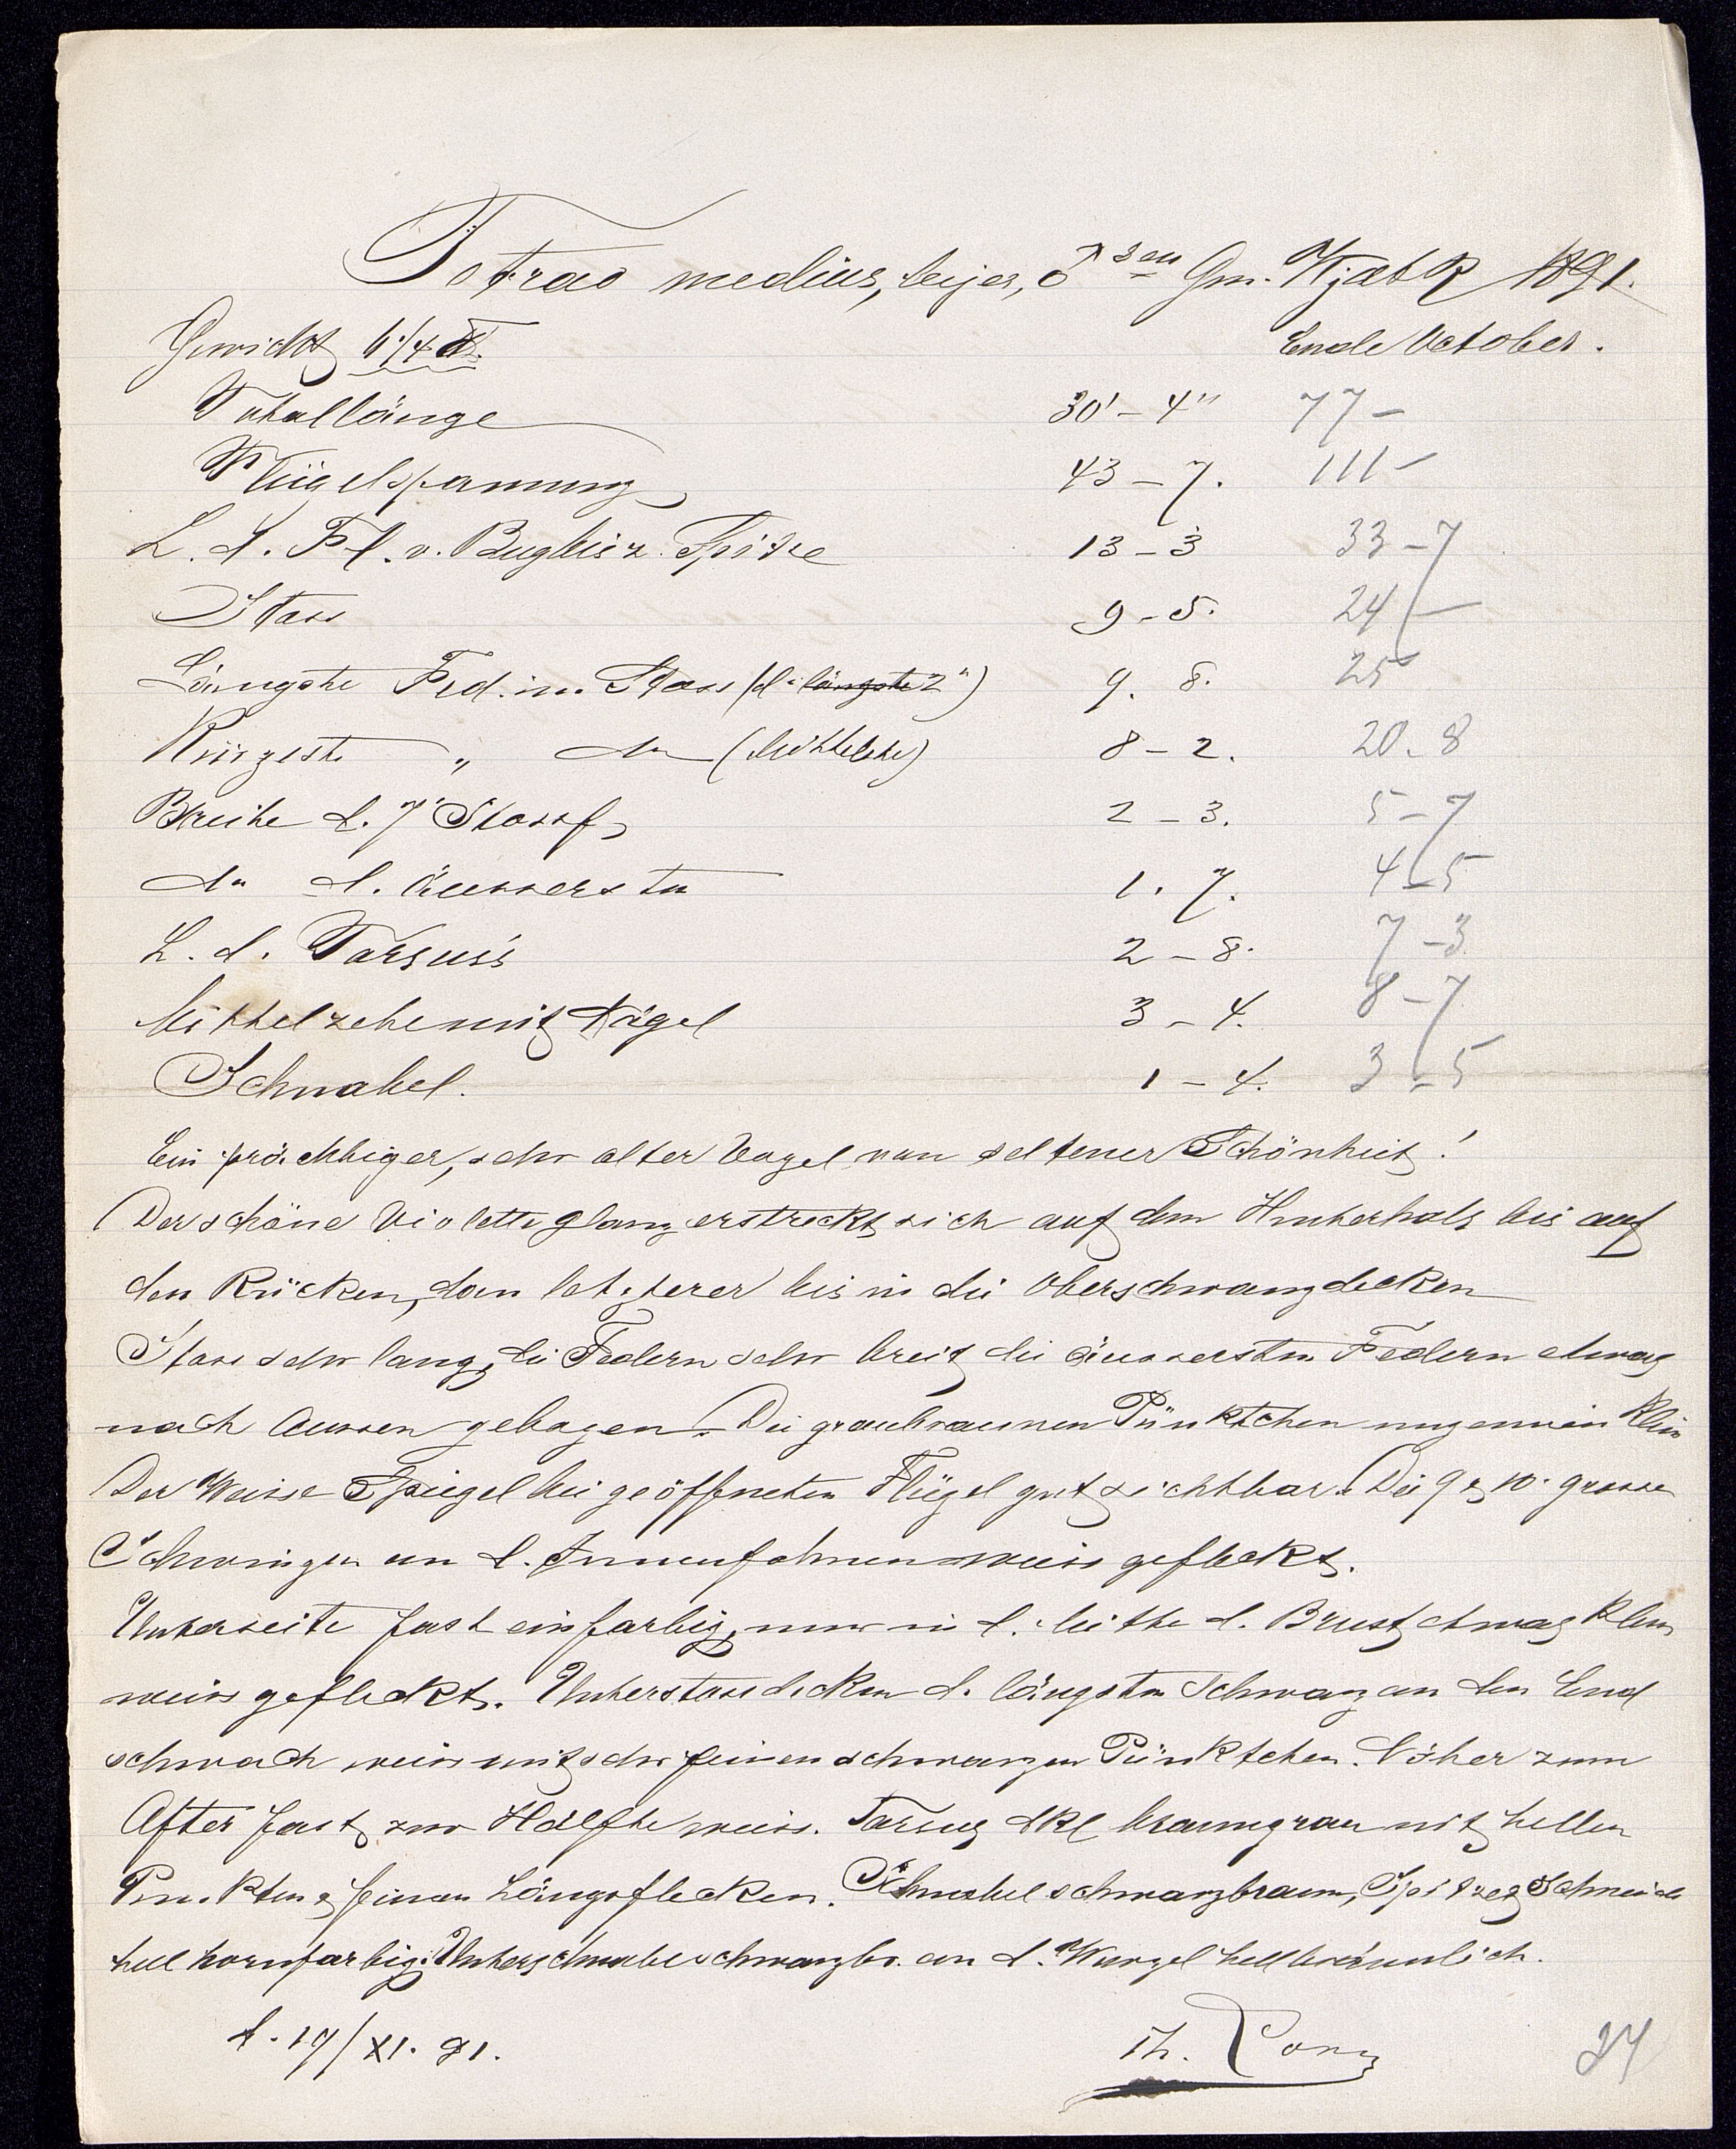 Tetrao medius, Meyer, ♂ sen Gm. Wjatk 1891.
Ende October.
Gewicht 6 1/4 ℔.
Totallänge 30' – 4" 77 –
Flügelspannung 43 – 7. 111 –
L. d. Fl. v. Bug bis z. Spitze 13 – 3 33 – 7
Stoss 9 – 5. 24 –
Längste Fed. im Stoss (d. längste 2") 9. 8. 25
Kürzeste " do (Mittelste) 8 – 2. 20. 8
Breite d. 7. Stossf. 2 – 3. 5 – 7
do d. äussersten 1. 7. 4 – 5
L. d. Tarsus's 2 – 8. 7 – 3
Mittelzehe mit Nagel 3 – 4. 8 – 7
Schnabel. 1 – 4. 3 – 5
Ein prächtiger, sehr alter Vogel von seltener Schönheit!
Der schöne Violette glanz erstreckt sich auf dem Hinterhals bis auf
den Rücken, dan letzterer bis in die Oberschwanzdecken
Stoss sehr lang, die Federn sehr breit die äussersten Federn etwas
nach Aussen gebogen. Die graubraunen Pünktchen ungemein klein
Der Weisse Spiegel bei geöffneten Flügel gut sichtbar. Die 9 & 10. grosse
Schwingen an d. Innenfahnen weiss gefleckt.
Unterseite fast einfarbig, nur in d. Mitte d. Brust etwas klein
weiss gefleckt. Unterstossdecken d. längsten Schwanz an den End
schwach weiss mit sehr feinen schwarzen Pünktchen. Näher zum
After fast zur Hälfte weiss. Tarsus dkl braungrau mit hellen
Punkten & feinen Längsflecken. Schnabel schwarzbraun, Spitze & Schneide
hell hornfarbig. Unterschnabel schwarzbr. an d. Wurzel hellbräunlich.
d. 19/XI. 91.
Th. Lorenz
24